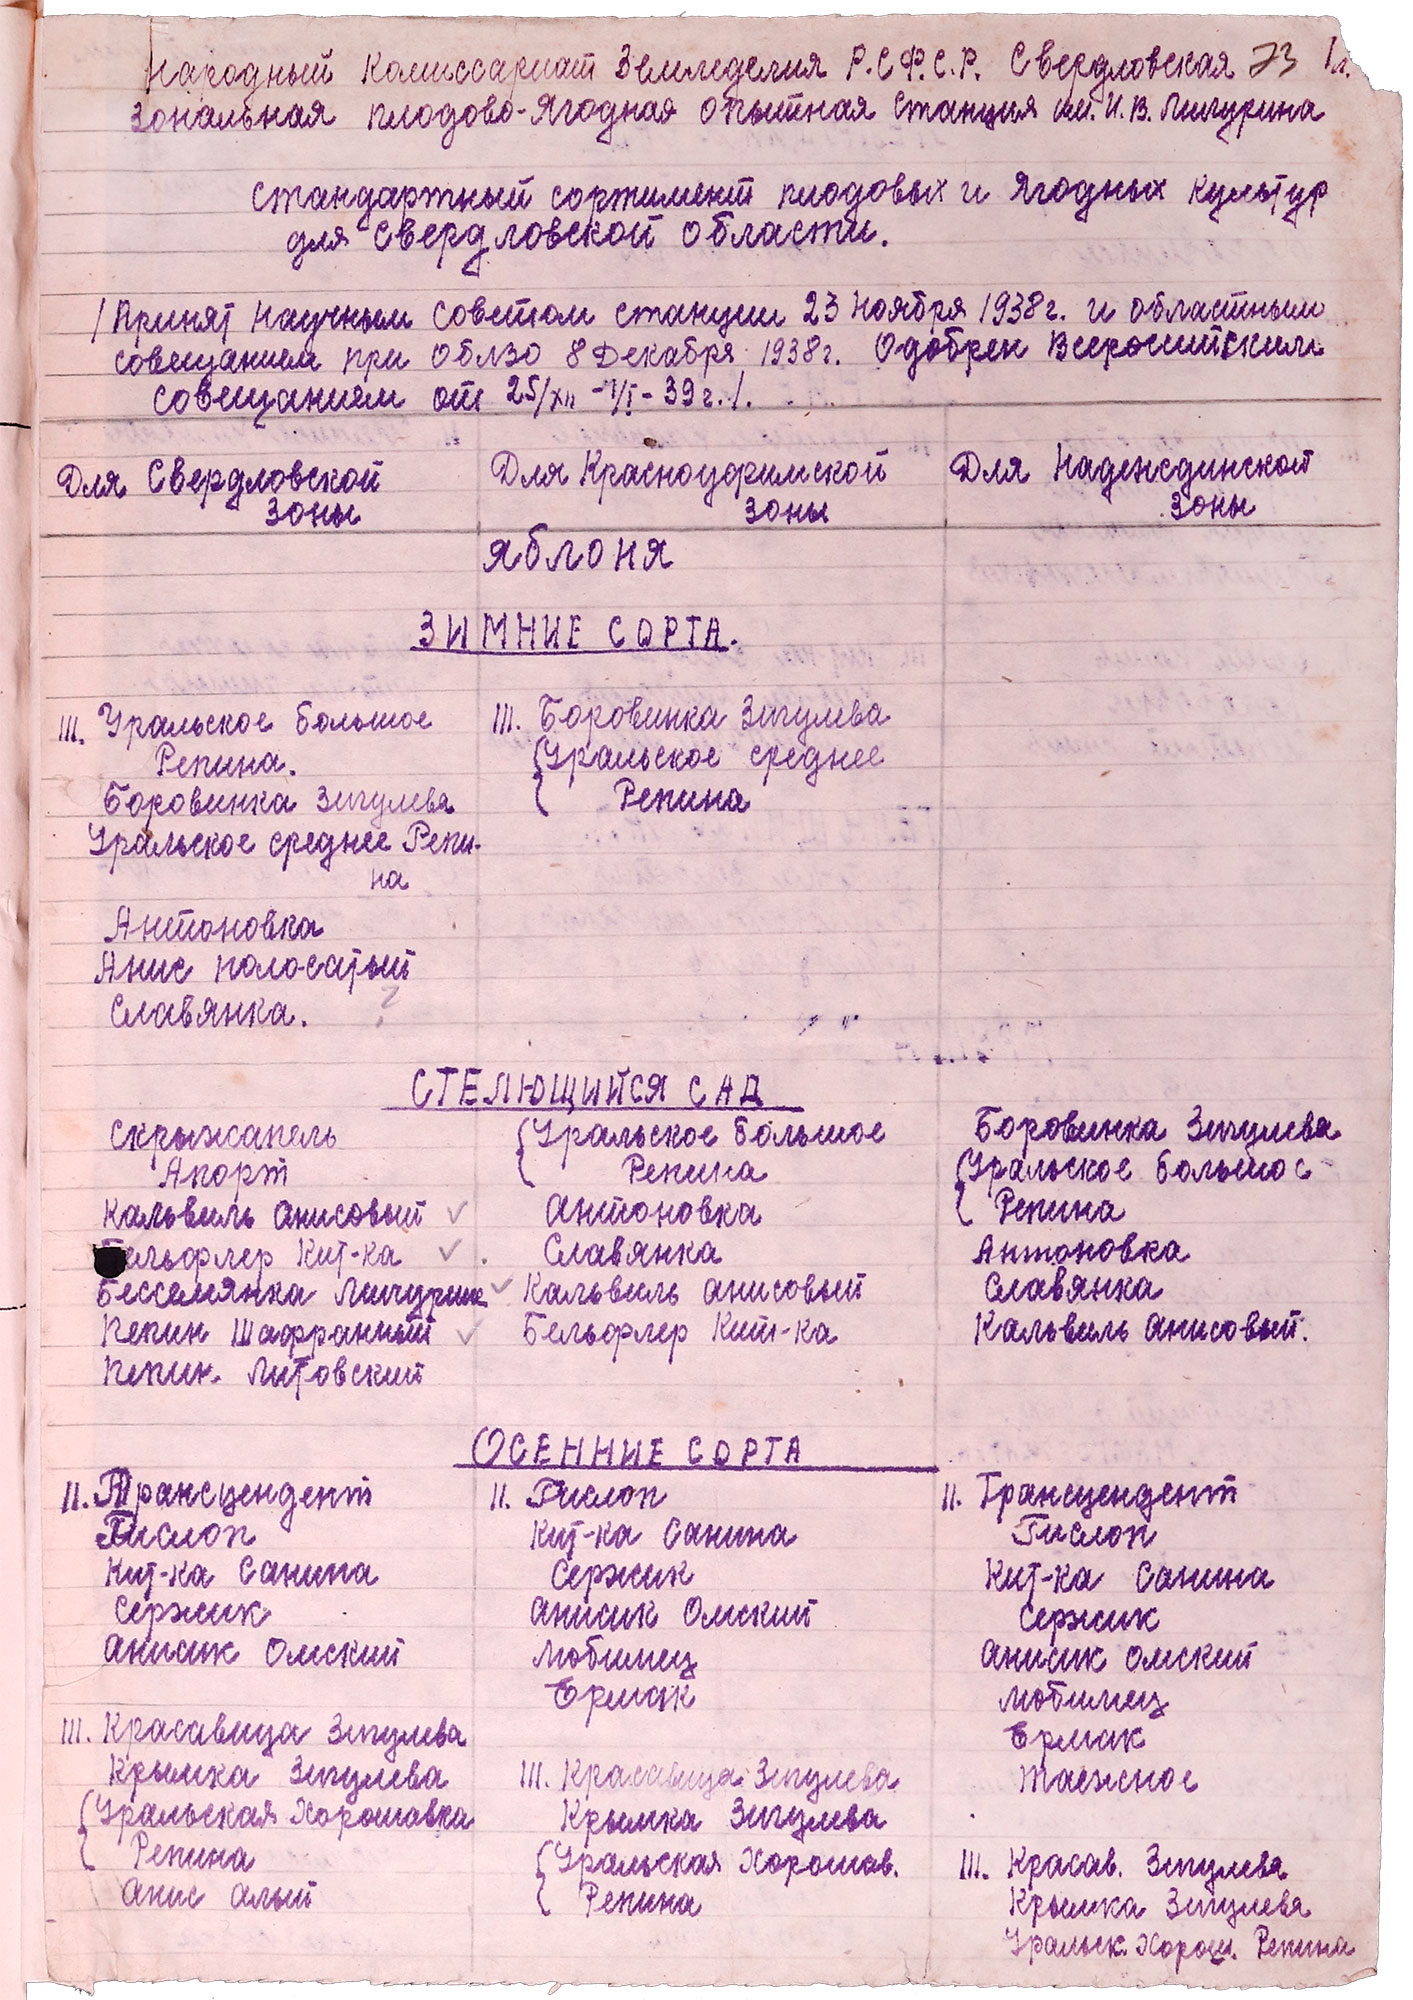 Народный Комиссариат Земледелия Р.С.Ф.С.Р. Свердловская 73 1л.
Зональная плодово-Ягодная опытная станция им. И.В. Мичурина
Стандартный сортимент плодовых и ягодных культур
для Свердловской области.
/Принят Научным советом станции 23 ноября 1938г. и областным
совещанием при Облзо 8 Декабря 1938г. Одобрен Всероссийским
совещанием от 25/XII - /I - 39г./.
Для Свердловской
зоны
Для Красноуфимской
зоны
Для Надеждинской
зоны
Яблоня
ЗИМНИЕ СОРТА.
III. Уральское большое
Репина.
Боровинка Зигулева
Уральское среднее Репи-
на
Антоновка
Анис полосатый
Славянка. ?
III. Боровинка Зигулева
Уральское среднее
Репина
СТЕЛЮЩИЙСЯ САД
Скрыжапель
Апорт
Кальвиль анисовый
Бельфлер Кит-ка
Бессемянка Мичурин
Пепин Шафранный
Пепин. Литовский
Уральское большое
Репина
Антоновка
Славянка
Кальвиль анисовый
Бельфлер Кит-ка
Боровинка Зигулева
Уральское большое
Репина
Антоновка
Славянка
Кальвиль Анисовый.
ОСЕННИЕ СОРТА
II. Трансцендент
Гислоп
Кит-ка Санина
Сержик
Анисик Омский
III. Красавица Зигулева
Крымка Зигулева
Уральская Хорошавка
Репина
Анис алый
II. Гислоп
Кит-ка Санина
Сержик
Анисик Омский
Любимец
Ермак
III. Красавица Зигулева
Крымка Зигулева
Уральская Хорошав.
Репина
II. Трансцендент
Гислоп
Кит-ка Санина
Сержик
Анисик Омский
Любимец
Ермак
Таежное
III. Красав. Зигулева
Крымка Зигулева
Уральск. Хорош. Репина